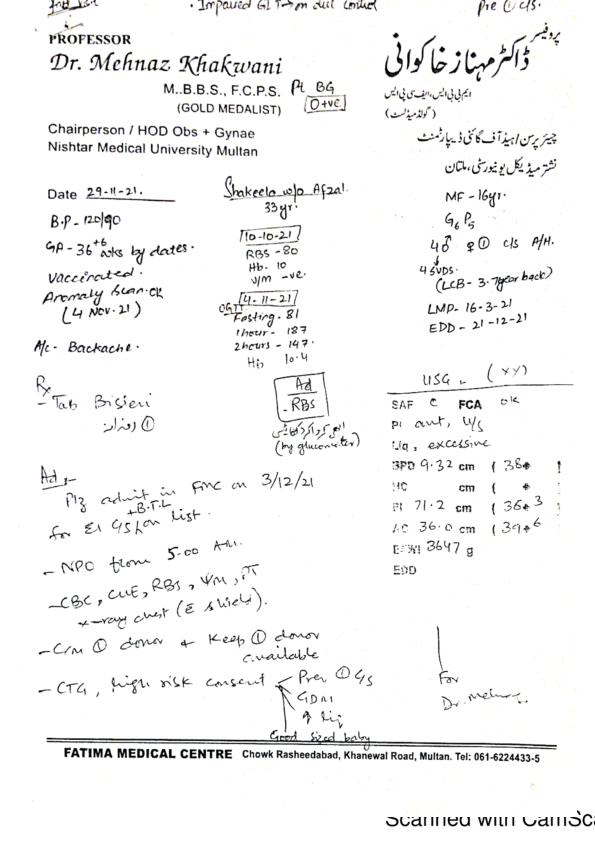 • Impaired GTT on diet control
Pre ① c/s.
PROFESSOR
Dr. Mehnaz Khakwani
M..B.B.S., F.C.P.S.
(GOLD MEDALIST)
Pt BG
O+ve
Chairperson / HOD Obs + Gynae
Nishtar Medical University Multan
پروفیسر
ڈاکٹر مہناز خاکوانی
ایم بی بی ایس، ایف سی پی ایس
(گولڈ میڈلسٹ)
چیئر پرسن/ہیڈ آف گائنی ڈیپارٹمنٹ
نشتر میڈیکل یونیورسٹی، ملتان
Date 29-11-21.
B.P - 120/90
GA - 36+6 wks by dates.
Vaccinated.
Anomaly Scan. OK
(4 Nov. 21)
M/c - Backache.
Shakeela w/o Afzal.
33yr.
10-10-21
RBS - 80
Hb. 10
V/M -ve.
4-11-21
OGTT
Fasting - 81
1hour - 187
2hours - 147.
Hb 10.4
MF - 16yr.
G6 P5
4♂ ♀① c/s A/H.
4 SVDS.
(LCB - 3.7year back)
LMP- 16-3-21
EDD - 21-12-21
Rx
- Tab
① روزانہ
Ad
- RBS
(by glucometer)
USG - (XY)
SAF c FCA ok
Pl ant, U/S
Liq, excessive
BPD 9.32 cm ( 38+
HC cm ( +
Fl 71.2 cm ( 36+3
AC 36.0 cm ( 39+6
EFW 3647 g
EDD
Ad :-
Plz admit in FMC on 3/12/21
+B.T.L
for El c/s on list.
- NPO from 5:00 AM.
- CBC, CUE, RBS, V/M, PT
x-ray chest (c shield).
- C/M ① donor & keep ① donor
available
- CTG, high risk consent Prev ① c/s
GDM
↑ liq
Good sized baby
For
Dr. Mehnaz
FATIMA MEDICAL CENTRE Chowk Rasheedabad, Khanewal Road, Multan. Tel: 061-6224433-5
Scanned with CamSca